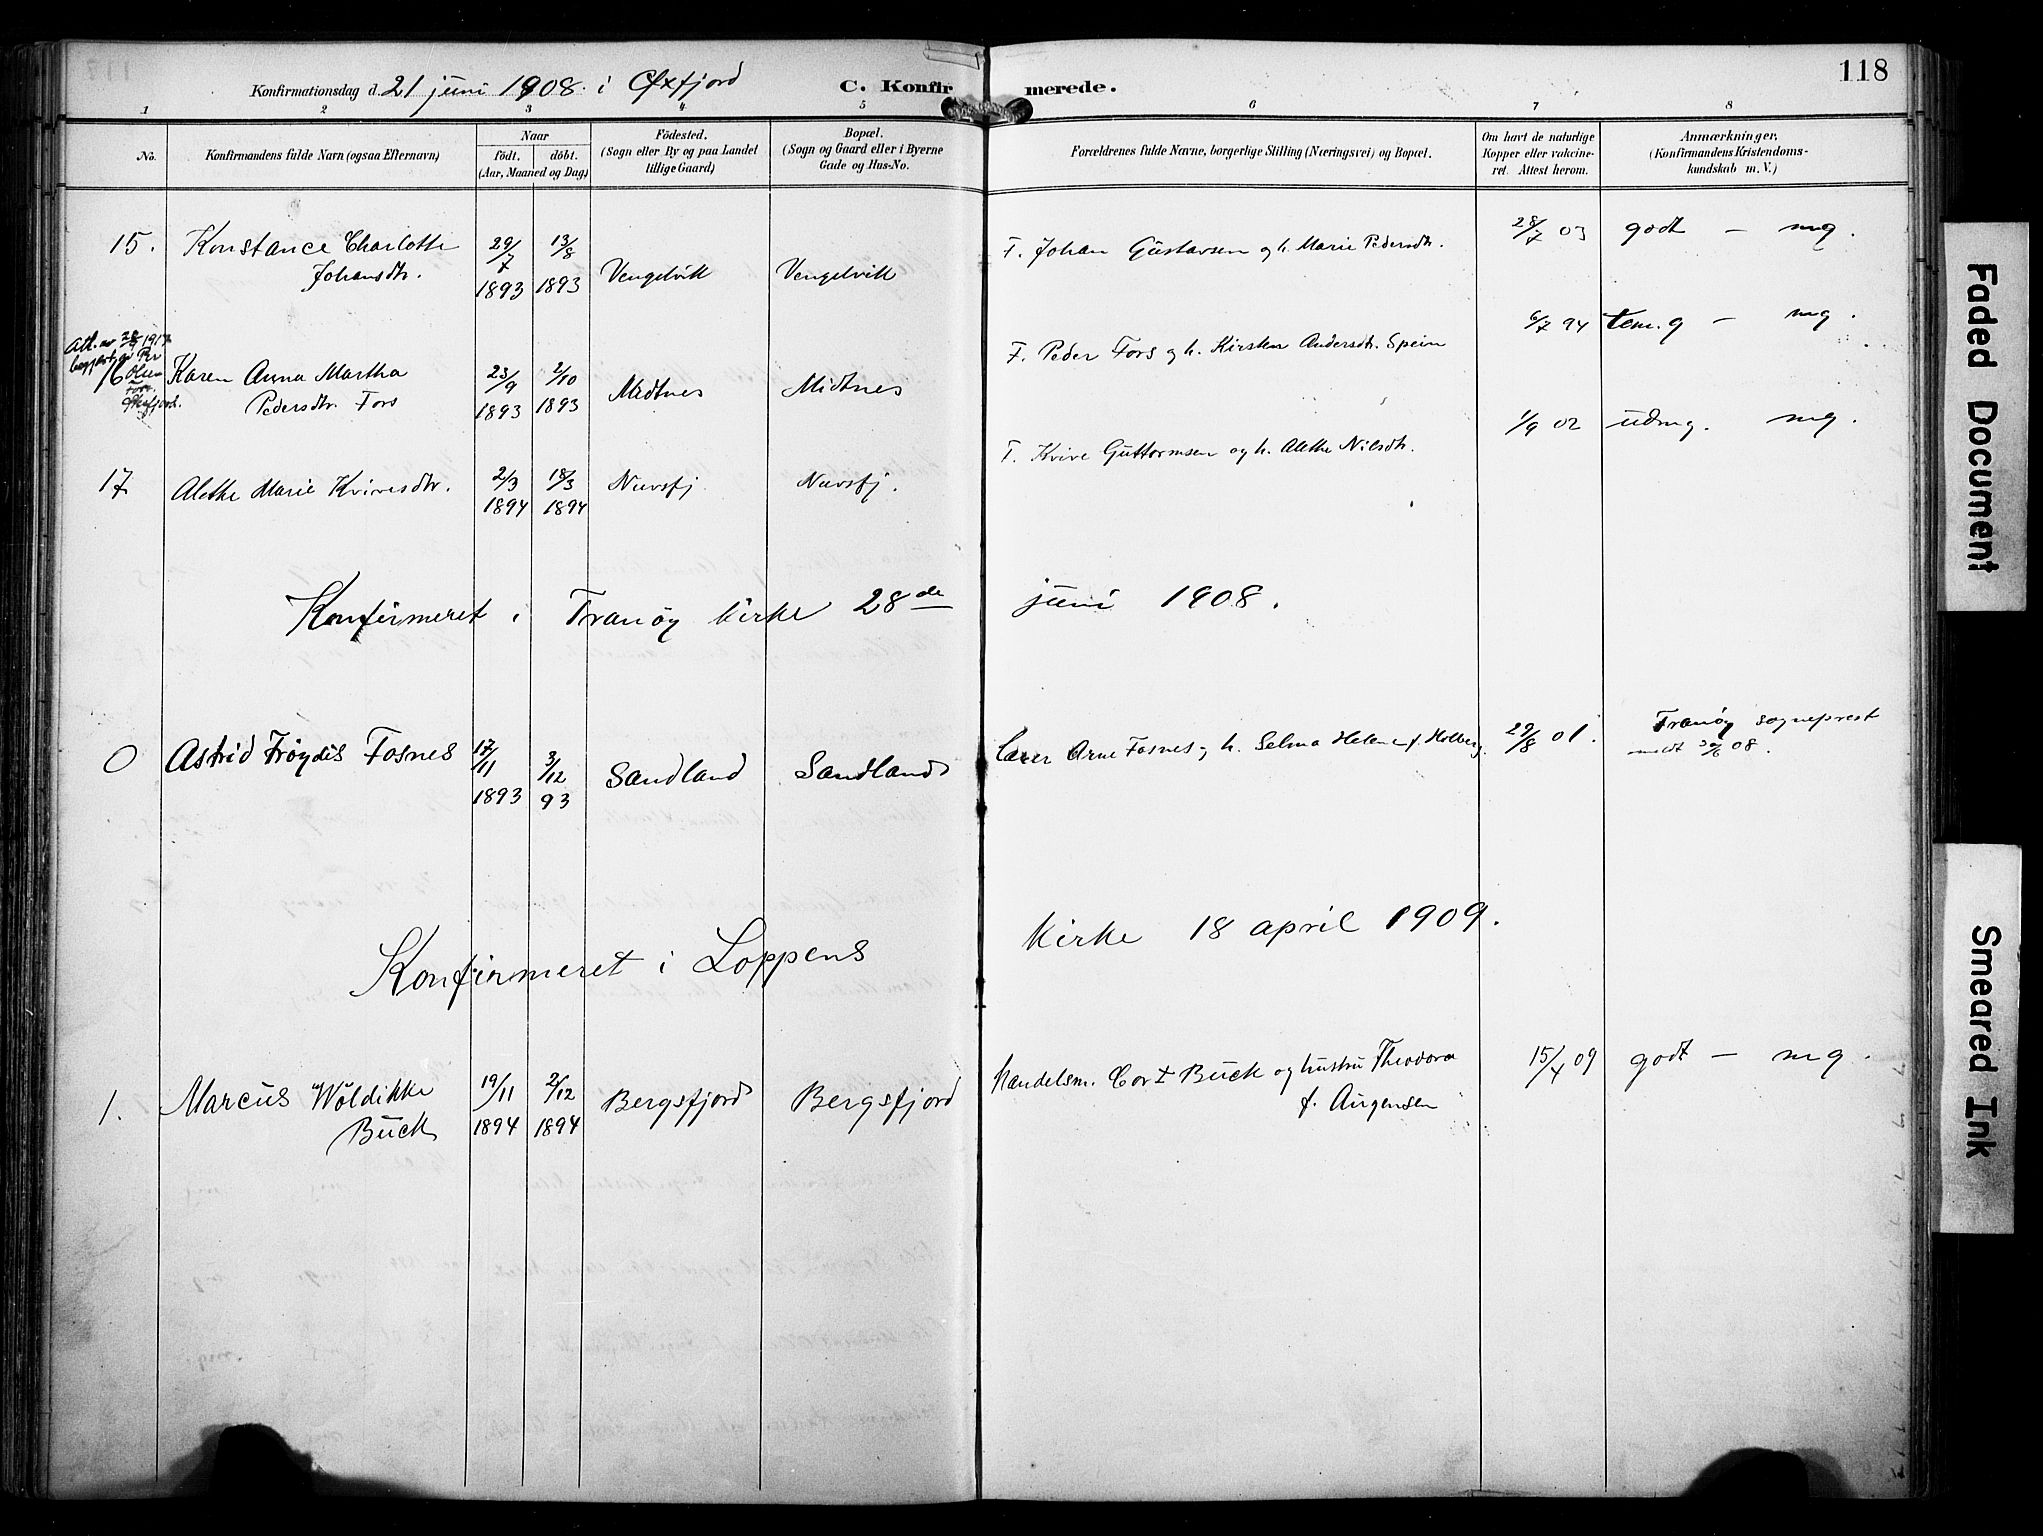 118
Konfirmationsdag d. 21 juni 1908. i Øxfjord
C. Konfirmerede.
1 2 3 4 5 6 7 8
No.
Konfirmandens fulde Navn (ogsaa Efternavn)
Naar
födt. döbt.
(Aar, Maaned og Dag)
Födested.
(Sogn eller By og paa Landet
tillige Gaard)
Bopæl.
(Sogn og Gaard eller i Byerne
Gade og Hus-No.
Forældrenes fulde Navne, borgerlige Stilling (Næringsvei) og Bopæl.
Om havt de naturlige
Kopper eller vakcine-
ret. Attest herom.
Anmærkninger.
(Konfirmandens Kristendoms-
kundskab m. V.)
15. Konstance Charlotte 29/7 13/8 F. Johan Gustavsen og h. Marie Pedersdtr. 28/7 03 godt — mg.
Johansdtr. 1893 1893 Vengelvik Vengelvik
Att. av 1917
16 Karen Anna Martha 23/9 2/10 F. Peder Fors og h. Kirsten Andersdtr. Spein 6/7 94 tem. g — mg.
Pedersdtr. Fors 1893 1893 Midtnes Midtnes
17 Alethe Marie Kviresdtr. 2/3 18/3 Nuvsfj. Nuvsfj. F. Kvive Guttormsen og h. Alethe Nilsdtr. 1/9 02 udmg. mg.
1894 1894
Konfirmeret i Tranøy kirke 28de juni 1908.
0 Astrid Frøydis Fosnes 17/11 3/12 Sandland Sandland Lærer Arne Fosnes og h. Selma Helene f. Holberg 29/8 01. Tranøy sogneprest
1893 93 medt 30/6 08.
Konfirmeret i Loppens kirke 18 april 1909.
1. Marcus Wöldikke 19/11 2/12 Bergsfjord Bergsfjord Handelsm. Cort Buck og hustru Theodora 15/4 09 godt — mg.
Buck 1894 1894 f. Aurgensen
Faded Document
Smeared Ink